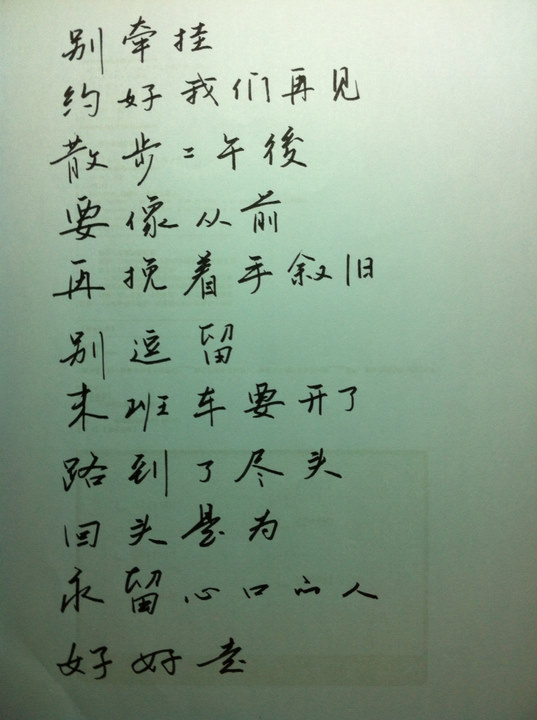 别牵挂
约好我们再见
散步在午後
要像从前
再挽着手叙旧
别逗留
末班车要开了
路到了尽头
回头是为
永留心口的人
好好走